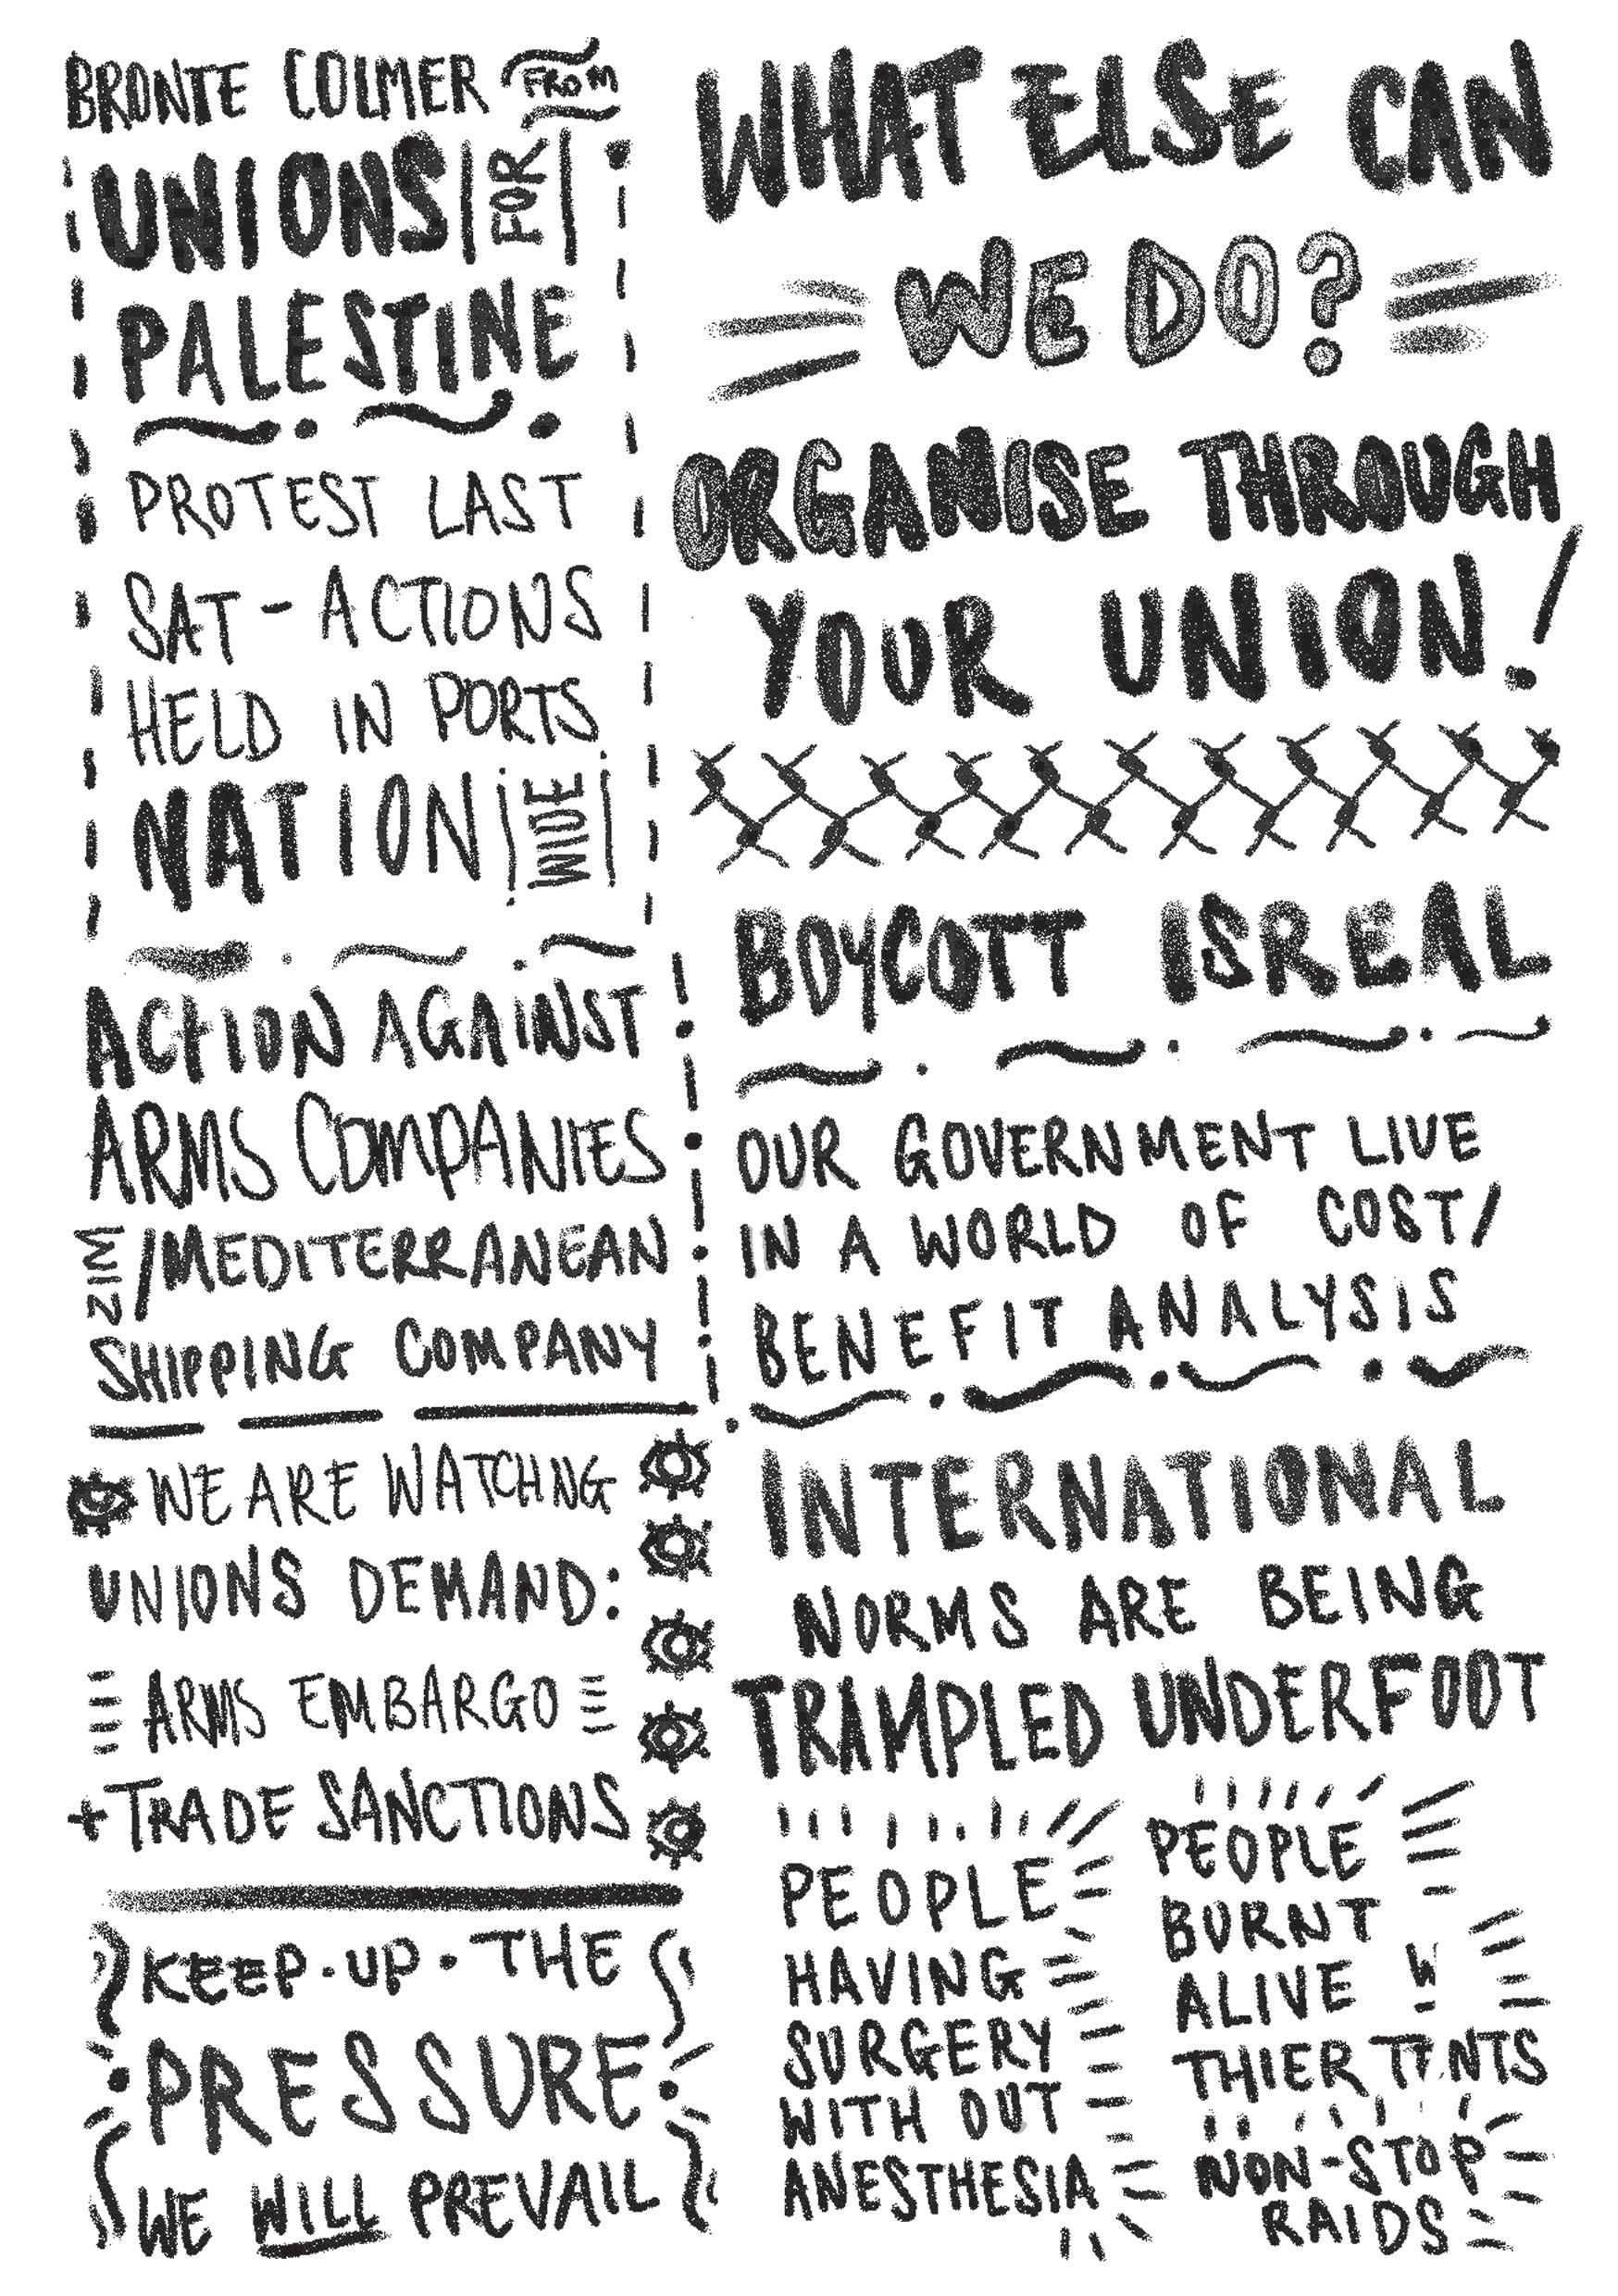 BRONTE COLMER FROM
UNIONS FOR
PALESTINE
PROTEST LAST
SAT - ACTIONS
HELD IN PORTS
NATION WIDE
ACTION AGAINST
ARMS COMPANIES
ZIM / MEDITERRANEAN
SHIPPING COMPANY
WE ARE WATCHNG
UNIONS DEMAND:
ARMS EMBARGO
+ TRADE SANCTIONS
KEEP · UP · THE
PRESSURE
WE WILL PREVAIL
WHAT ELSE CAN
WE DO?
ORGANISE THROUGH
YOUR UNION!
BOYCOTT ISREAL
OUR GOVERNMENT LIVE
IN A WORLD OF COST/
BENEFIT ANALYSIS
INTERNATIONAL
NORMS ARE BEING
TRAMPLED UNDERFOOT
PEOPLE
HAVING
SURGERY
WITH OUT
ANESTHESIA
PEOPLE
BURNT
ALIVE
THIER TENTS
NON-STOP
RAIDS